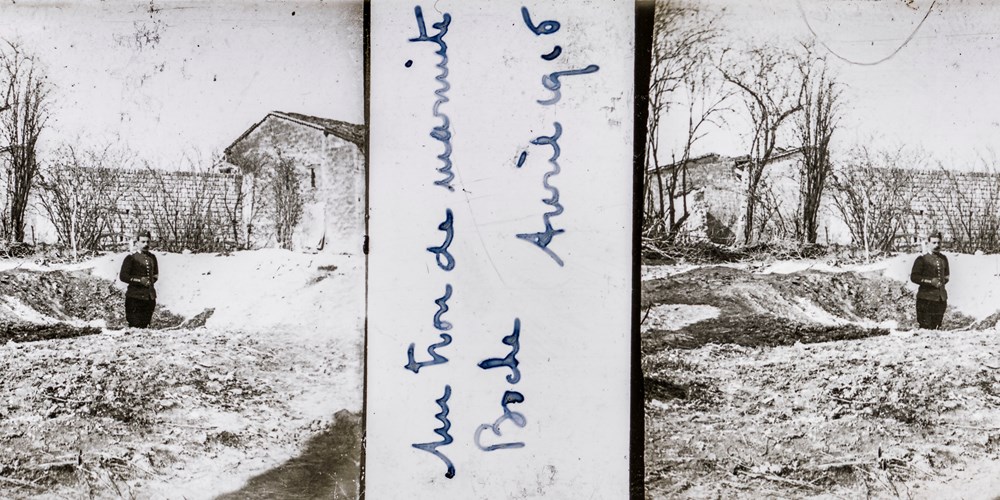 Un trou de marmite
Boche Avril 1916